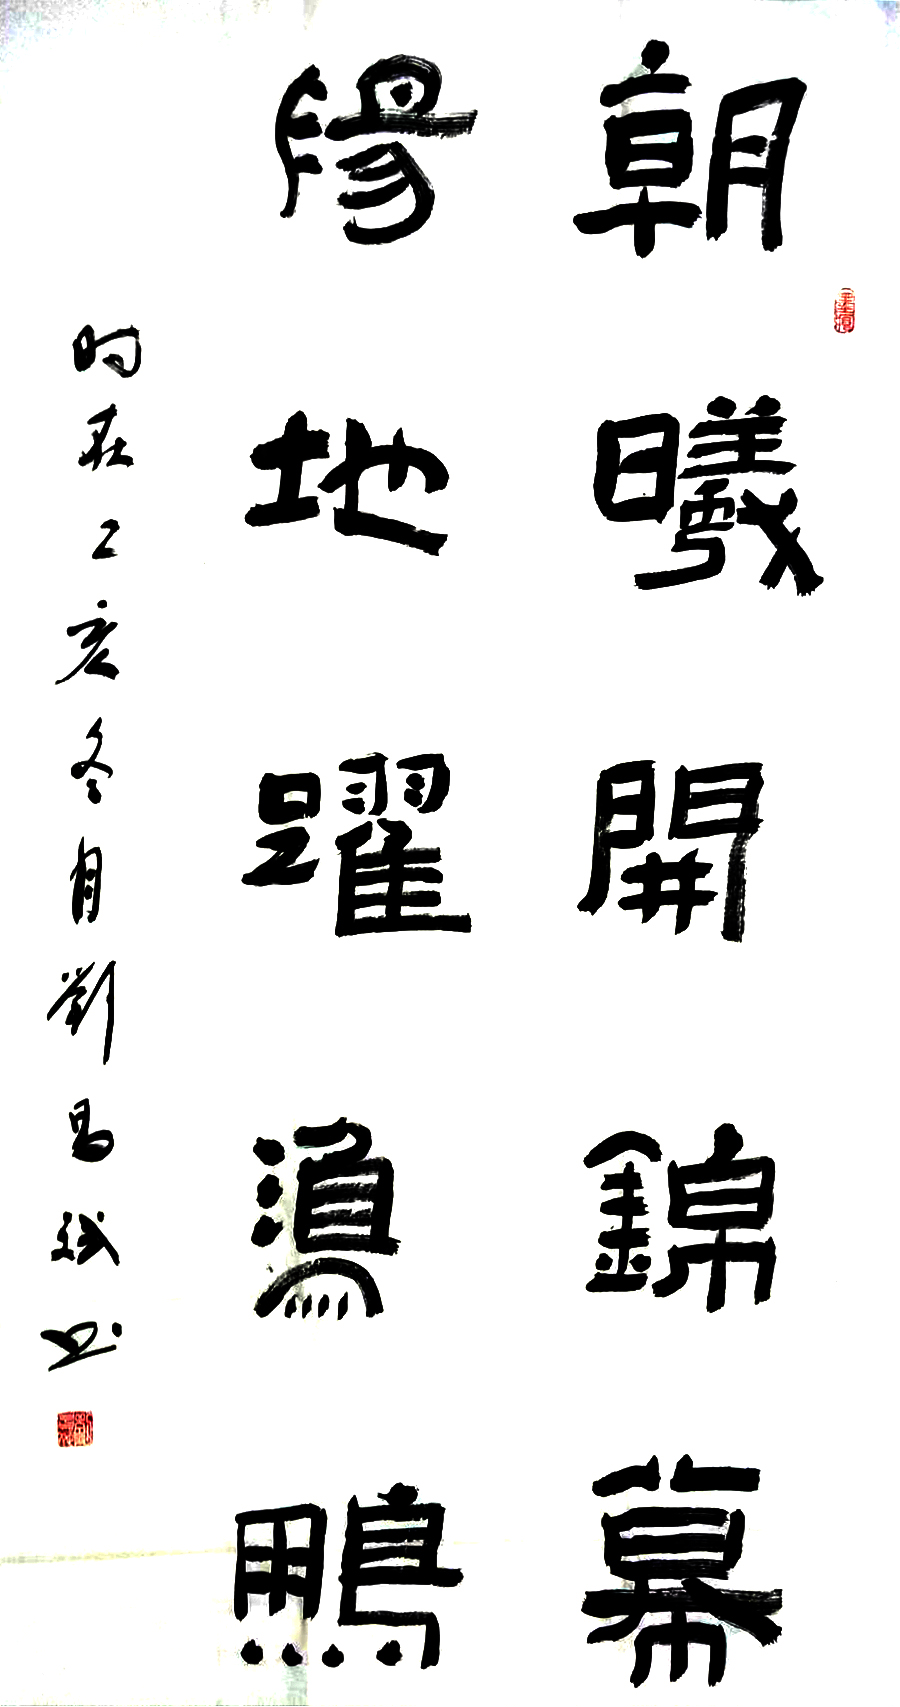 朝曦開錦幕
陽地躍鵬
时在己亥冬月劉昌斌书